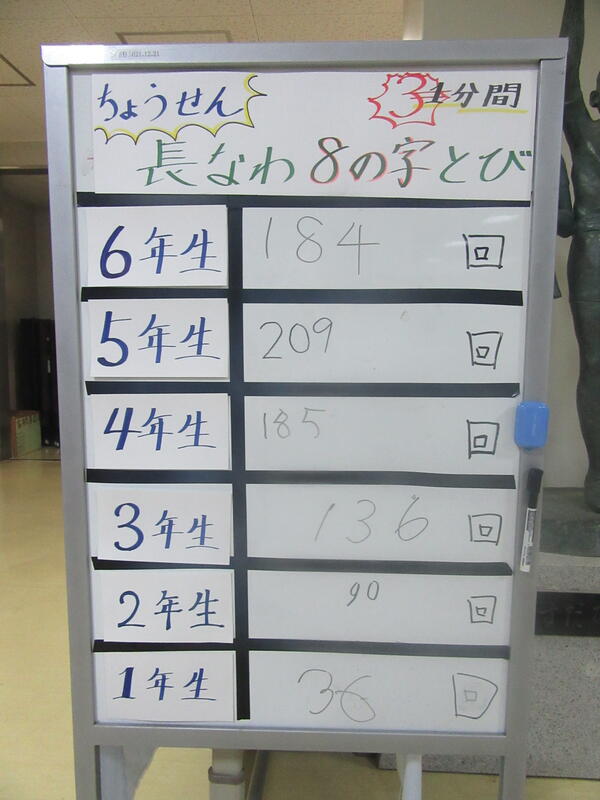 ちょうせん 3分間
長なわ8の字とび
6年生 184 回
5年生 209 回
4年生 185 回
3年生 136 回
2年生 90 回
1年生 36 回